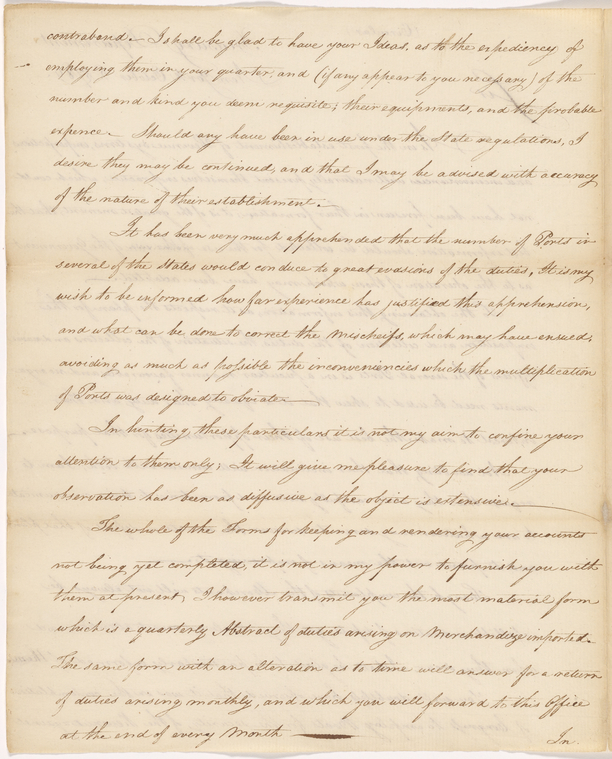 contraband.— I shall be glad to have your Ideas, as to the expediency of
employing them in your quarter, and (if any appear to you necessary) of the
number and kind you deem requisite; their equipments, and the probable
expence.— Should any have been in use under the State regulations, I
desire they may be continued, and that I may be advised with accuracy
of the nature of their establishment.—
It has been very much apprehended that the number of Ports in
several of the States would conduce to great evasions of the duties, It is my
wish to be informed how far experience has justified this apprehension,
and what can be done to correct the Mischeifs, which may have ensued;
avoiding as much as possible the inconveniencies which the multiplication
of Ports was designed to obviate.—
In hinting these particulars it is not my aim to confine your
attention to them only; It will give me pleasure to find that your
observation has been as diffusive as the object is extensive.—
The whole of the Forms for keeping and rendering your accounts
not being yet completed, it is not in my power to furnish you with
them at present, I however transmit you the most material form
which is a quarterly Abstract of duties arising on Merchandize imported.
The same form with an alteration as to time will answer for a return
of duties arising monthly, and which you will forward to this Office
at the end of every Month —
In.